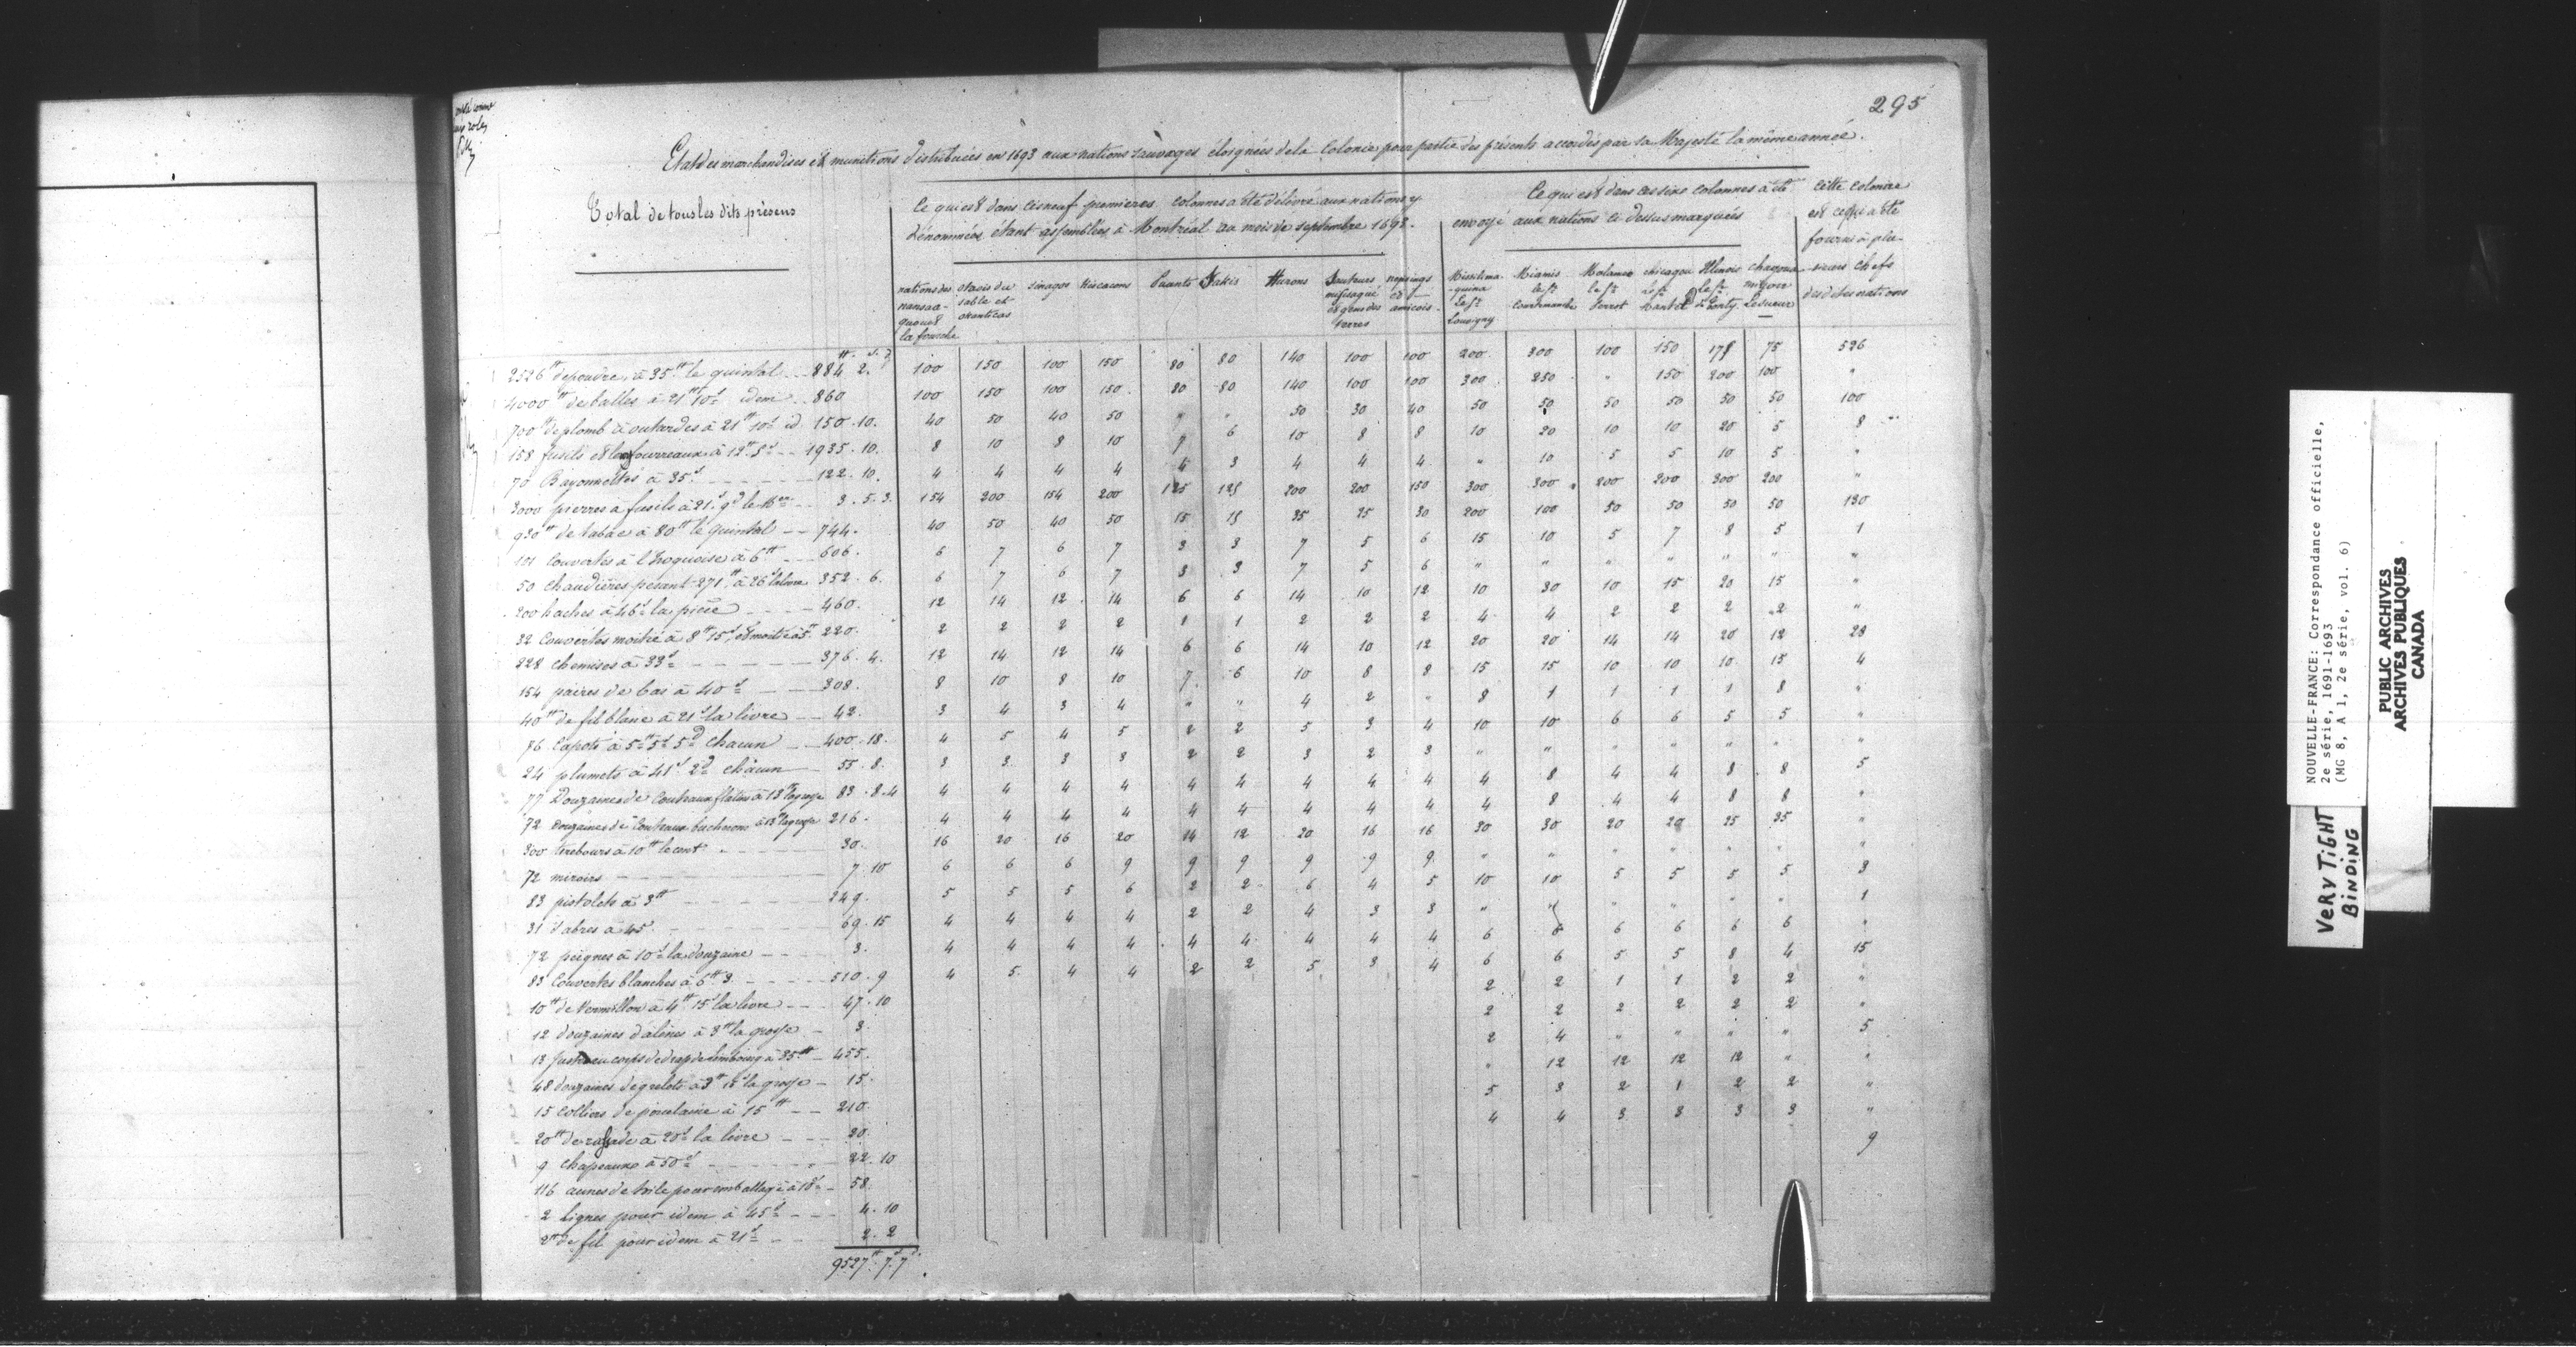 295
Etat des marchandises et munitions distribuées en 1693 aux nations sauvages éloignées de la Colonie pour partie des présents accordés par sa Majesté la même année.
Total de tous les dits présens
Ce qui est dans ces neuf premieres colonnes a été délivré aux nations y
dénommées étant assemblées à Montréal au mois de septembre 1693.
Ce qui est dans ces six colonnes à été
envoyé aux nations ci dessus marquées
cette colonne
est ce qui a été
fourni à plu-
-sieurs chefs
des dites nations
nations des
la fourche
sable et
sinagos
Kiscacons
Puants
Sakis
Hurons
Sauteurs
et gens des
terres
et
Missilima-
-quina
le Sr
Louvigny
Miamis
le Sr
Courtemanche
le Sr
Perrot
chicagou
le Sr
Mantet
Ilinois
le Sr
de Tonty
Lesueur
2526 tt de poudre, à 35 tt le quintal 884 2. 100 150 100 150 80 80 140 100 100 200 300 100 150 175 75 526
4000 tt de balles à 21 tt 10 s idem 860 100 150 100 150 80 80 140 100 100 300 250 " 150 200 100 "
700 tt de plomb à outardes à 21 tt 10 s id 150.10. 40 50 40 50 " " 50 30 40 50 50 50 50 50 50 100
158 fusils et les fourreaux à 12 tt 5 s 1935.10. 8 10 8 10 7 6 10 8 8 10 20 10 10 20 5 8
70 Bayonnettes à 35 s 122.10. 4 4 4 4 4 3 4 4 4 " 10 5 5 10 5 "
3000 pierres à fusils à 21 s 9 d le 3.5.3. 154 200 154 200 125 125 200 200 150 300 300 200 200 300 200 "
930 tt de tabac à 80 tt le quintal 744. 40 50 40 50 15 15 35 25 30 200 100 50 50 50 50 130
101 Couvertes à l'Iroquoise à 6 tt 606. 6 7 6 7 3 3 7 5 6 15 10 5 7 8 5 1
50 chaudières pesant 271 tt à 26 s la livre 352.6. 6 7 6 7 3 3 7 5 6 " " " " " " "
200 haches à 46 s la pièce 460. 12 14 12 14 6 6 14 10 12 10 30 10 15 20 15 "
32 Couvertes moitié à 8 tt 15 s et moitié à 5 tt 220. 2 2 2 2 1 1 2 2 2 4 4 2 2 2 2 "
228 chemises à 33 s 376.4. 12 14 12 14 6 6 14 10 12 20 20 14 14 20 12 28
154 paires de bas à 40 s 308. 8 10 8 10 7 6 10 8 8 15 15 10 10 10 15 4
40 tt de fil blanc à 21 s la livre 42. 3 4 3 4 " " 4 2 " 8 1 1 1 1 8 "
76 Capots à 5 tt 5 s 5 d chacun 400.18. 4 5 4 5 2 2 5 3 4 10 10 6 6 5 5 "
24 plumets à 41 s 2 d chacun 55.8. 3 3 3 3 2 2 3 2 3 " " " " " " "
77 Douzaines de couteaux flatins à 13 tt la grosse 83.8.4 4 4 4 4 4 4 4 4 4 4 8 4 4 8 8 5
72 Douzaines de Couteaux bucherons la grosse 216. 4 4 4 4 4 4 4 4 4 4 8 4 4 8 8 "
300 tirebours à 10 tt le cent 30. 16 20 16 20 14 12 20 16 16 30 30 20 20 25 35 "
72 miroirs 7.10 6 6 6 9 9 9 9 9 9 " " " " " " "
83 pistolets à 3 tt 249. 5 5 5 6 2 2 6 4 5 10 10 5 5 5 5 3
31 sabres à 45 s 69.15 4 4 4 4 2 2 4 3 3 " " " " " " 1
72 peignes à 10 s la douzaine 3. 4 4 4 4 4 4 4 4 4 6 6 6 6 6 6 "
83 Couvertes blanches à 6 tt 3 510.9 4 5 4 4 2 2 5 3 4 6 6 5 5 8 4 15
10 tt de Vermillon à 4 tt 15 s la livre 47.10 2 2 1 1 2 2 "
12 douzaines d'alênes à 3 tt la grosse 3. 2 2 2 2 2 2 "
13 Justeaucorps de drap de limbourg à 35 tt 455. 2 4 " " " " 5
48 douzaines de grelots à 3 tt 15 s la grosse 15. " 12 12 12 12 " "
15 Colliers de porcelaine à 15 tt 210. 5 3 2 1 2 2 "
20 tt de rassade à 20 s la livre 20. 4 4 3 3 3 3 "
9 chapeaux à 50 s 22.10 9
116 aunes de toile pour emballage à 10 s 58.
2 Lignes pour idem à 45 s 4.10
2 tt de fil pour idem à 21 s 2.2
9527 tt 7 s 7 d
NOUVELLE-FRANCE: Correspondance officielle,
2e série, 1691-1693
(MG 8, A 1, 2e série, vol. 6)
PUBLIC ARCHIVES
ARCHIVES PUBLIQUES
CANADA
VERY TIGHT
BINDING